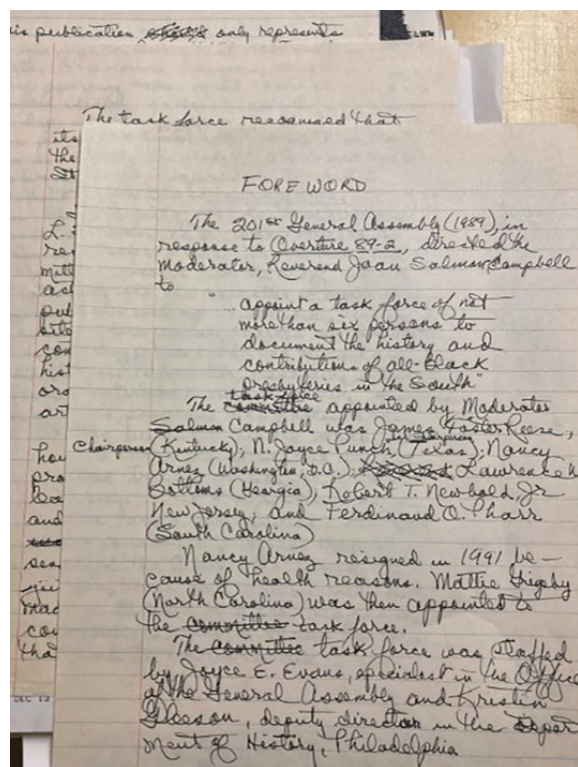 is publication only represents
The task force recognized that
its
the
FOREWORD
The 201st General Assembly (1989), in
response to Overture 89-2, directed the
Moderator, Reverend Joan Salmon Campbell
to
"... appoint a task force of not
more than six persons to
document the history and
contributions of all-Black
presbyteries in the South"
task force
The committee appointed by Moderator
Salmon Campbell was James Foster Reese,
Chairperson (Kentucky); N. Joyce Punch, (Texas); Nancy
Arnez (Washington, D.C.); Lawrence
Bottoms (Georgia), Robert T. Newbold, Jr
New Jersey; and Ferdinand O. Pharr
(South Carolina)
Nancy Arnez resigned in 1991 be-
cause of health reasons. Mattie Grigsby
(North Carolina) was then appointed to
the committee task force.
The committee task force was staffed
by Joyce E. Evans, specialist in the Office
of the General Assembly and Kristin
Gleeson, deputy director in the Depart
ment of History, Philadelphia
L.
mitt
pub
con
hist
art
hou
pro
and
mad
cou
tha
DEC 13